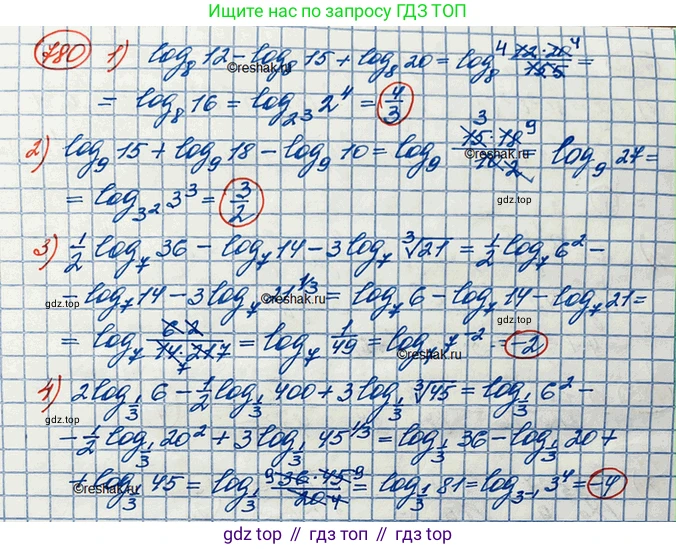 Ищите нас по запросу ГДЗ ТОП
780 1) log₈ 12 - log₈ 15 + log₈ 20 = log₈ (12·20)/15 =
©reshak.ru
= log₈ 16 = log_{2^3} 2⁴ = 4/3
2) log₉ 15 + log₉ 18 - log₉ 10 = log₉ (15·18)/10 = log₉ 27 =
©reshak.ru
= log_{3^2} 3³ = 3/2
gdz.top
3) 1/2 log₇ 36 - log₇ 14 - 3 log₇ ∛21 = 1/2 log₇ 6² -
- log₇ 14 - 3 log₇ 21^{1/3} = log₇ 6 - log₇ 14 - log₇ 21 =
©reshak.ru
gdz.top
= log₇ 6/(14·21) = log₇ 1/49 = log₇ 7⁻² = -2
©reshak.ru
4) 2 log_{1/3} 6 - 1/2 log_{1/3} 400 + 3 log_{1/3} ∛45 = log_{1/3} 6² -
- 1/2 log_{1/3} 20² + 3 log_{1/3} 45^{1/3} = log_{1/3} 36 - log_{1/3} 20 +
gdz.top
+ log_{1/3} 45 = log_{1/3} (36·45)/20 = log_{1/3} 81 = log_{3^{-1}} 3⁴ = -4
©reshak.ru
gdz.top
gdz.top // гдз топ // gdz.top